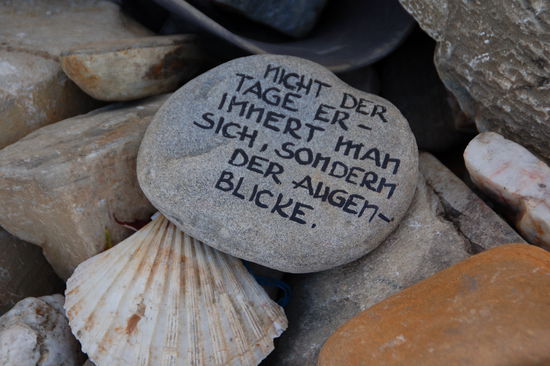 NICHT DER
TAGE ER-
INNERT MAN
SICH, SONDERN
DER AUGEN-
BLICKE.